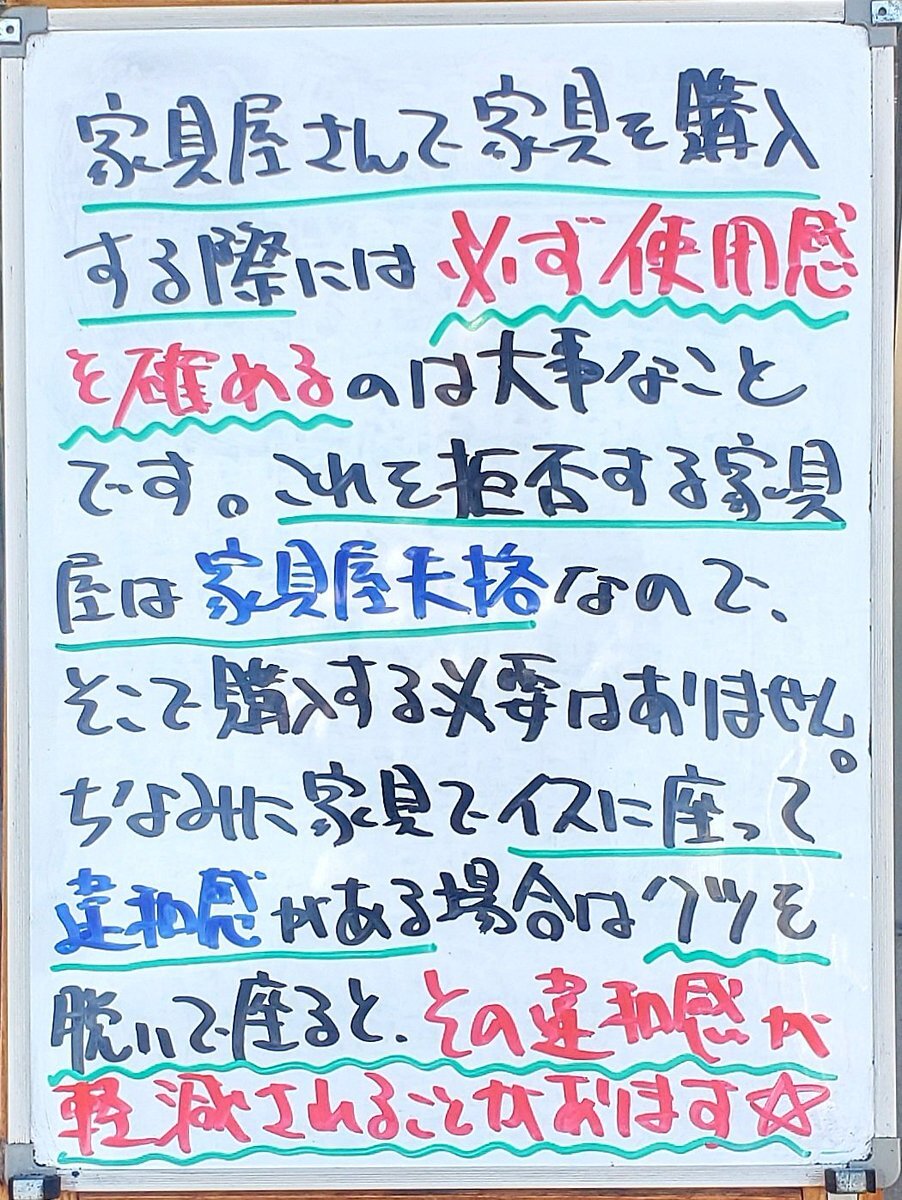 家具屋さんで家具を購入
する際には必ず使用感
を確めるのは大事なこと
です。これを拒否する家具
屋は家具屋失格なので、
そこで購入する必要はありません。
ちなみに家具でイスに座って
違和感がある場合はクツを
脱いで座ると、その違和感が
軽減されることがあります☆